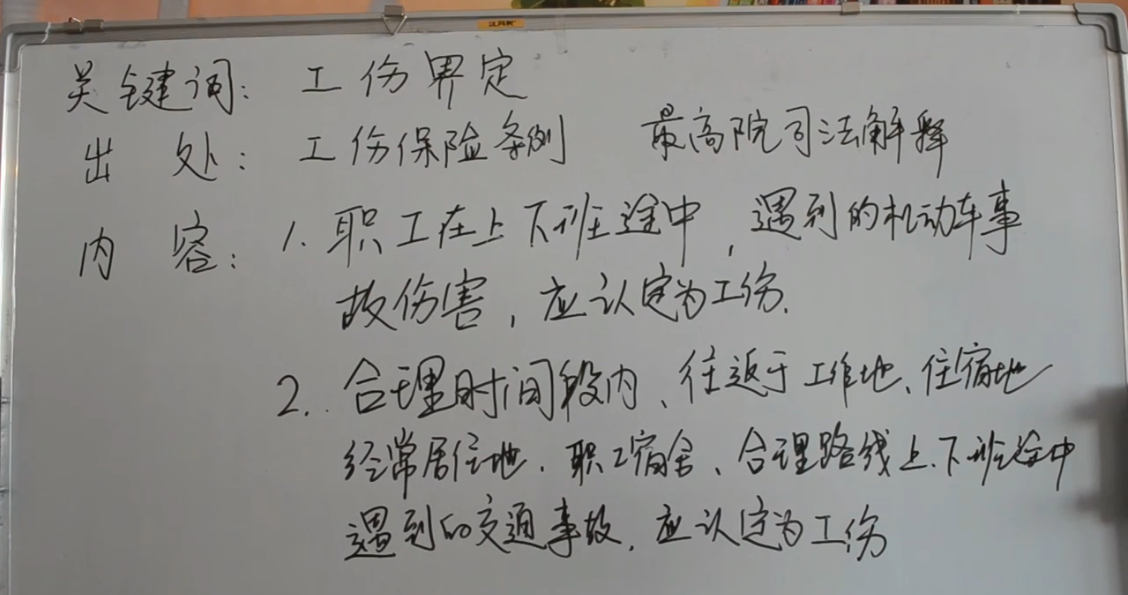 关键词: 工伤界定
出处: 工伤保险条例 最高院司法解释
内容: 1. 职工在上下班途中,遇到的机动车事
故伤害,应认定为工伤.
2. 合理时间段内、往返于工作地、住宿地
经常居住地.职工宿舍、合理路线上.下班途中
遇到的交通事故.应认定为工伤